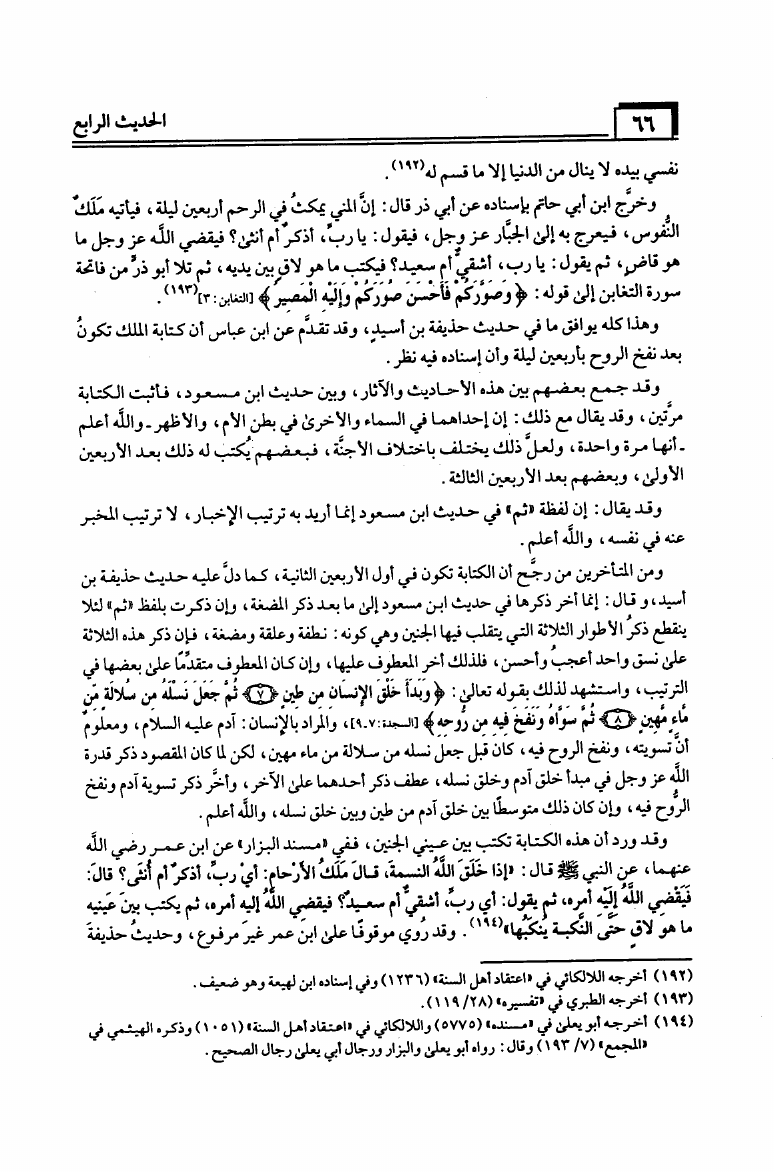 ٦٦
الحديث الرابع
نفسي بيده لا ينال من الدنيا إلا ما قسم له(١٩٢).
وخرَّج ابن أبي حاتم بإسناده عن أبي ذر قال: إنَّ المني يمكثُ في الرحم أربعين ليلة، فيأتيه مَلَكُ
النُّفوس، فيعرج به إلىٰ الجبَّار عز وجل، فيقول: يا ربِّ، أذكرٌ أم أنثىٰ؟ فيقضي اللَّه عز وجل ما
هو قاضٍ، ثم يقول: يا رب، أشقيٌّ أم سعيد؟ فيكتب ما هو لاقٍ بين يديه، ثم تلا أبو ذرٍّ من فاتحة
سورة التغابن إلىٰ قوله: ﴿ وَصَوَّرَكُمْ فَأَحْسَنَ صُوَرَكُمْ وَإِلَيْهِ الْمَصِيرُ ﴾ [التغابن: ٣](١٩٣).
وهذا كله يوافق ما في حديث حذيفة بن أسيدٍ، وقد تقدَّم عن ابن عباس أن كتابة الملك تكونُ
بعد نفخ الروح بأربعين ليلة وأن إسناده فيه نظر.
وقد جمع بعضهم بين هذه الأحاديث والآثار، وبين حديث ابن مسعود، فأثبت الكتابة
مرَّتين، وقد يقال مع ذلك: إن إحداهما في السماء والأخرىٰ في بطن الأم، والأظهر ـ واللَّه أعلم
ـ أنها مرة واحدة، ولعلَّ ذلك يختلف باختلاف الأجنَّة، فبعضهم يُكتب له ذلك بعد الأربعين
الأولىٰ، وبعضهم بعد الأربعين الثالثة.
وقد يقال: إن لفظة «ثم» في حديث ابن مسعود إنما أريد به ترتيب الإخبار، لا ترتيب المخبر
عنه في نفسه، واللَّه أعلم.
ومن المتأخرين من رجَّح أن الكتابة تكون في أول الأربعين الثانية، كما دلَّ عليه حديث حذيفة بن
أسيد، وقال: إنما أخر ذكرها في حديث ابن مسعود إلىٰ ما بعد ذكر المضغة، وإن ذكرت بلفظ «ثم» لئلا
ينقطع ذكرُ الأطوار الثلاثة التي يتقلب فيها الجنين وهي كونه: نطفة وعلقة ومضغة، فإن ذكر هذه الثلاثة
علىٰ نسق واحد أعجبُ وأحسن، فلذلك أخر المعطوف عليها، وإن كان المعطوف متقدِّمًا علىٰ بعضها في
الترتيب، واستشهد لذلك بقوله تعالىٰ: ﴿ وَبَدَأَ خَلْقَ الإِنسَانِ مِن طِينٍ ﴿٧﴾ ثُمَّ جَعَلَ نَسْلَهُ مِن سُلالَةٍ مِّن
مَّاءٍ مَّهِينٍ ﴿٨﴾ ثُمَّ سَوَّاهُ وَنَفَخَ فِيهِ مِن رُّوحِهِ ﴾ [السجدة: ٧ـ٩]، والمراد بالإنسان: آدم عليه السلام، ومعلومٌ
أنَّ تسويته، ونفخ الروح فيه، كان قبل جعل نسله من سلالة من ماء مهين، لكن لما كان المقصود ذكر قدرة
اللَّه عز وجل في مبدأ خلق آدم وخلق نسله، عطف ذكر أحدهما علىٰ الآخر، وأخَّر ذكر تسوية آدم ونفخ
الرُّوح فيه، وإن كان ذلك متوسطًا بين خلق آدم من طين وبين خلق نسله، واللَّه أعلم.
وقد ورد أن هذه الكتابة تكتب بين عيني الجنين، ففي «مسند البزار» عن ابن عمر رضي اللَّه
عنهما، عن النبي ﷺ قال: «إذا خَلَقَ اللَّهُ النسمةَ، قالَ مَلَكُ الأرْحامِ: أيْ ربِّ، أذكرٌ أم أُنثَى؟ قالَ:
فَيَقْضِي اللَّهُ إِلَيْهِ أمره، ثم يقول: أي ربِّ، أشقيٌّ أم سعيدٌ؟ فيقضي اللَّهُ إليه أمره، ثم يكتب بينَ عَينيه
ما هو لاقٍ حتَّى النَّكبة يُنكَبُها»(١٩٤). وقد رُوي موقوفًا علىٰ ابن عمر غيرَ مرفوع، وحديثُ حذيفةَ
(١٩٢) أخرجه اللالكائي في «اعتقاد أهل السنة» (١٢٣٦) وفي إسناده ابن لهيعة وهو ضعيف.
(١٩٣) أخرجه الطبري في «تفسيره» (٢٨/ ١١٩).
(١٩٤) أخرجه أبو يعلىٰ في «مسنده» (٥٧٧٥) واللالكائي في «اعتقاد أهل السنة» (١٠٥١) وذكره الهيثمي في
«المجمع» (٧/ ١٩٣) وقال: رواه أبو يعلىٰ والبزار ورجال أبي يعلىٰ رجال الصحيح.